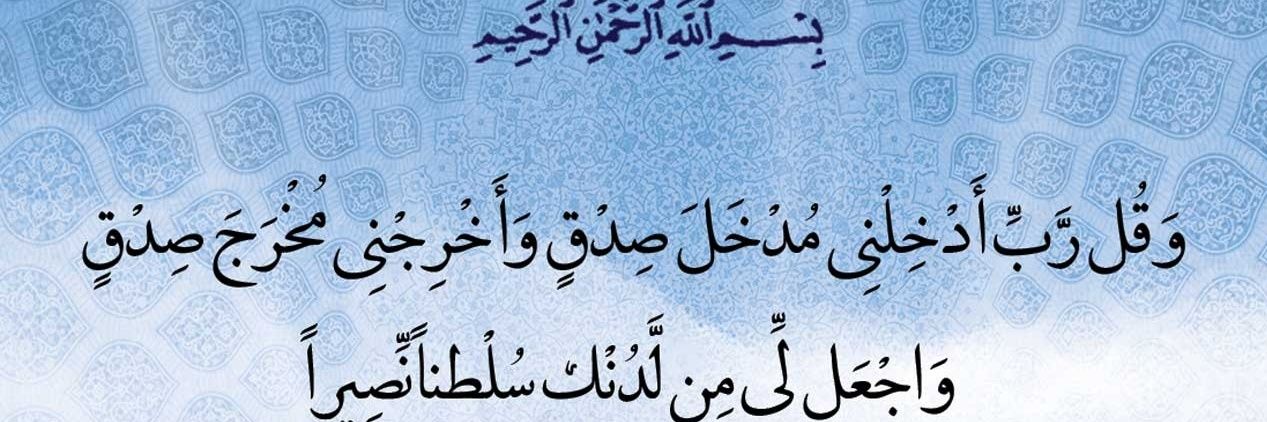 بِسْمِ ٱللَّهِ ٱلرَّحْمَٰنِ ٱلرَّحِيمِ
وَقُل رَّبِّ أَدْخِلْنِی مُدْخَلَ صِدْقٍ وَأَخْرِجْنِی مُخْرَجَ صِدْقٍ
وَاجْعَل لِّی مِن لَّدُنْكَ سُلْطناً نَّصِیراً